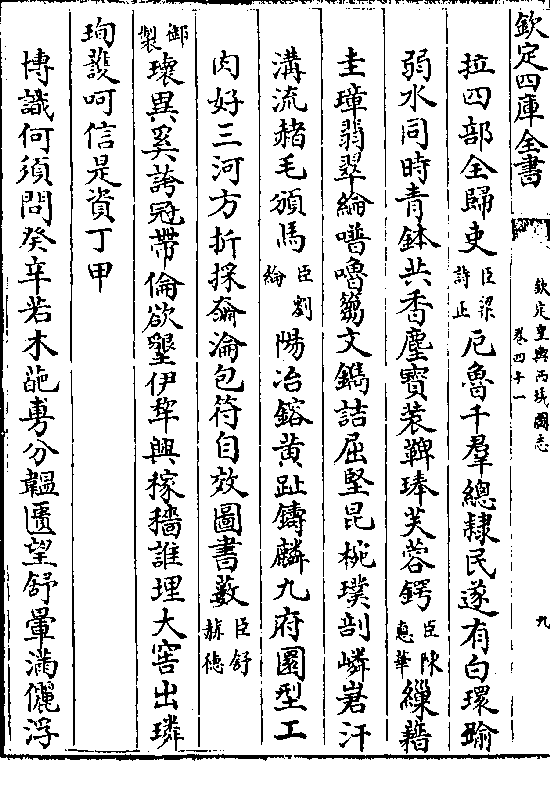 欽定四庫全書
欽定皇輿西域圖志
卷四十一
九
拉四部全歸吏臣梁詩正厄魯千羣總隸民遂有白環踰
弱水同時青鉢共香塵寶裝鞞琫芙蓉鍔臣陳悳華繅藉
圭璋翡翠綸噆嚕篘文鐫詰屈堅昆椀璞剖嶙峮汗
溝流赭毛頒馬臣劉綸陽冶鎔黄趾鑄麟九府圜型工
肉好三河方折採奫淪包符自效圖書藪臣舒赫德
御製瓌異奚誇冠帶倫欲墾伊犂興稼穡誰埋大窖出璘
珣䕶呵信是資丁甲
博識何須問癸辛若木葩尃分韞匵望舒暈滿儷浮